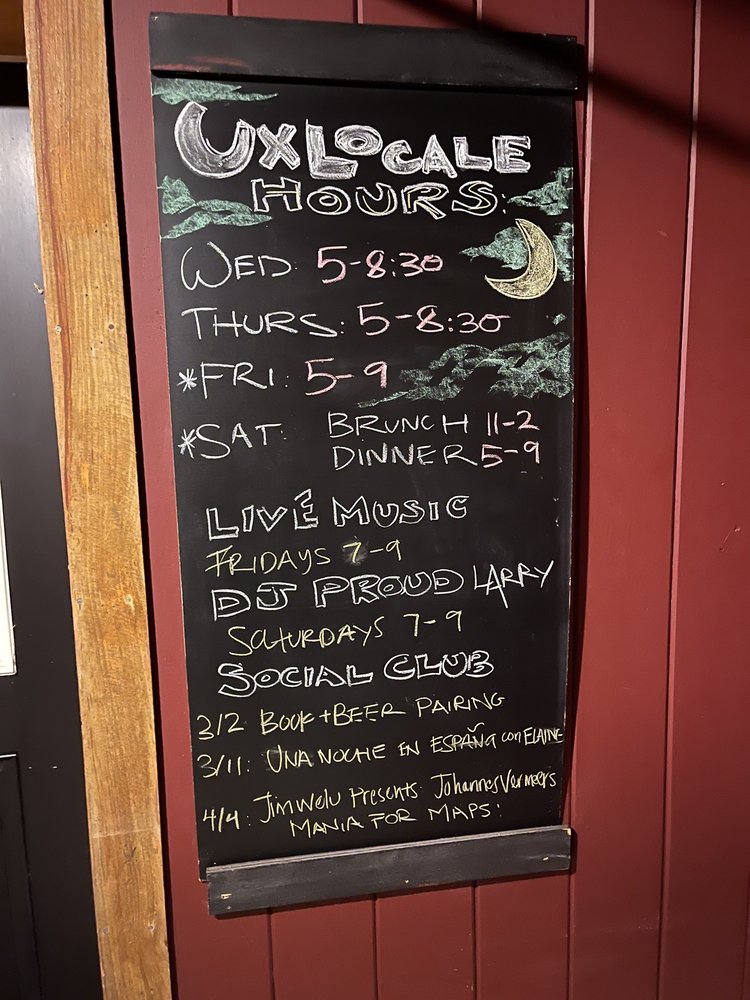 UXLOCALE
HOURS:
WED: 5-8:30
THURS: 5-8:30
*FRI: 5-9
*SAT: BRUNCH 11-2
DINNER 5-9
LIVE MUSIC
FRIDAYS 7-9
DJ PROUD LARRY
SATURDAYS 7-9
SOCIAL CLUB
3/2 BOOK+BEER PAIRING
3/11: UNA NOCHE EN ESPAÑA con ELAINE
4/4: Jim Welu Presents: Johannes Vermeers
MANIA FOR MAPS!